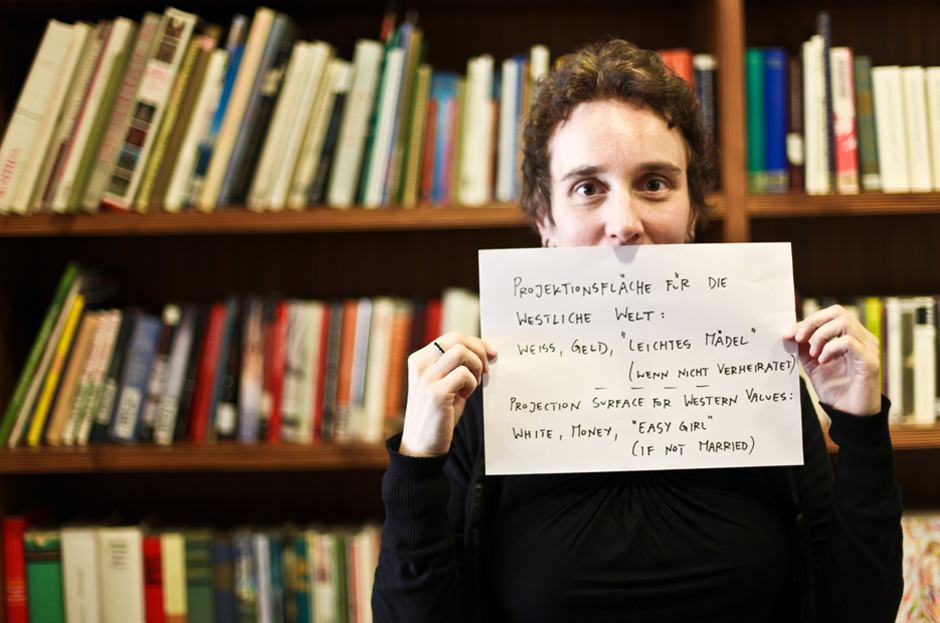 PROJEKTIONSFLÄCHE FÜR DIE
WESTLICHE WELT:
WEISS, GELD, "LEICHTES MÄDEL"
(WENN NICHT VERHEIRATET)
PROJECTION SURFACE FOR WESTERN VALUES:
WHITE, MONEY, "EASY GIRL"
(IF NOT MARRIED)